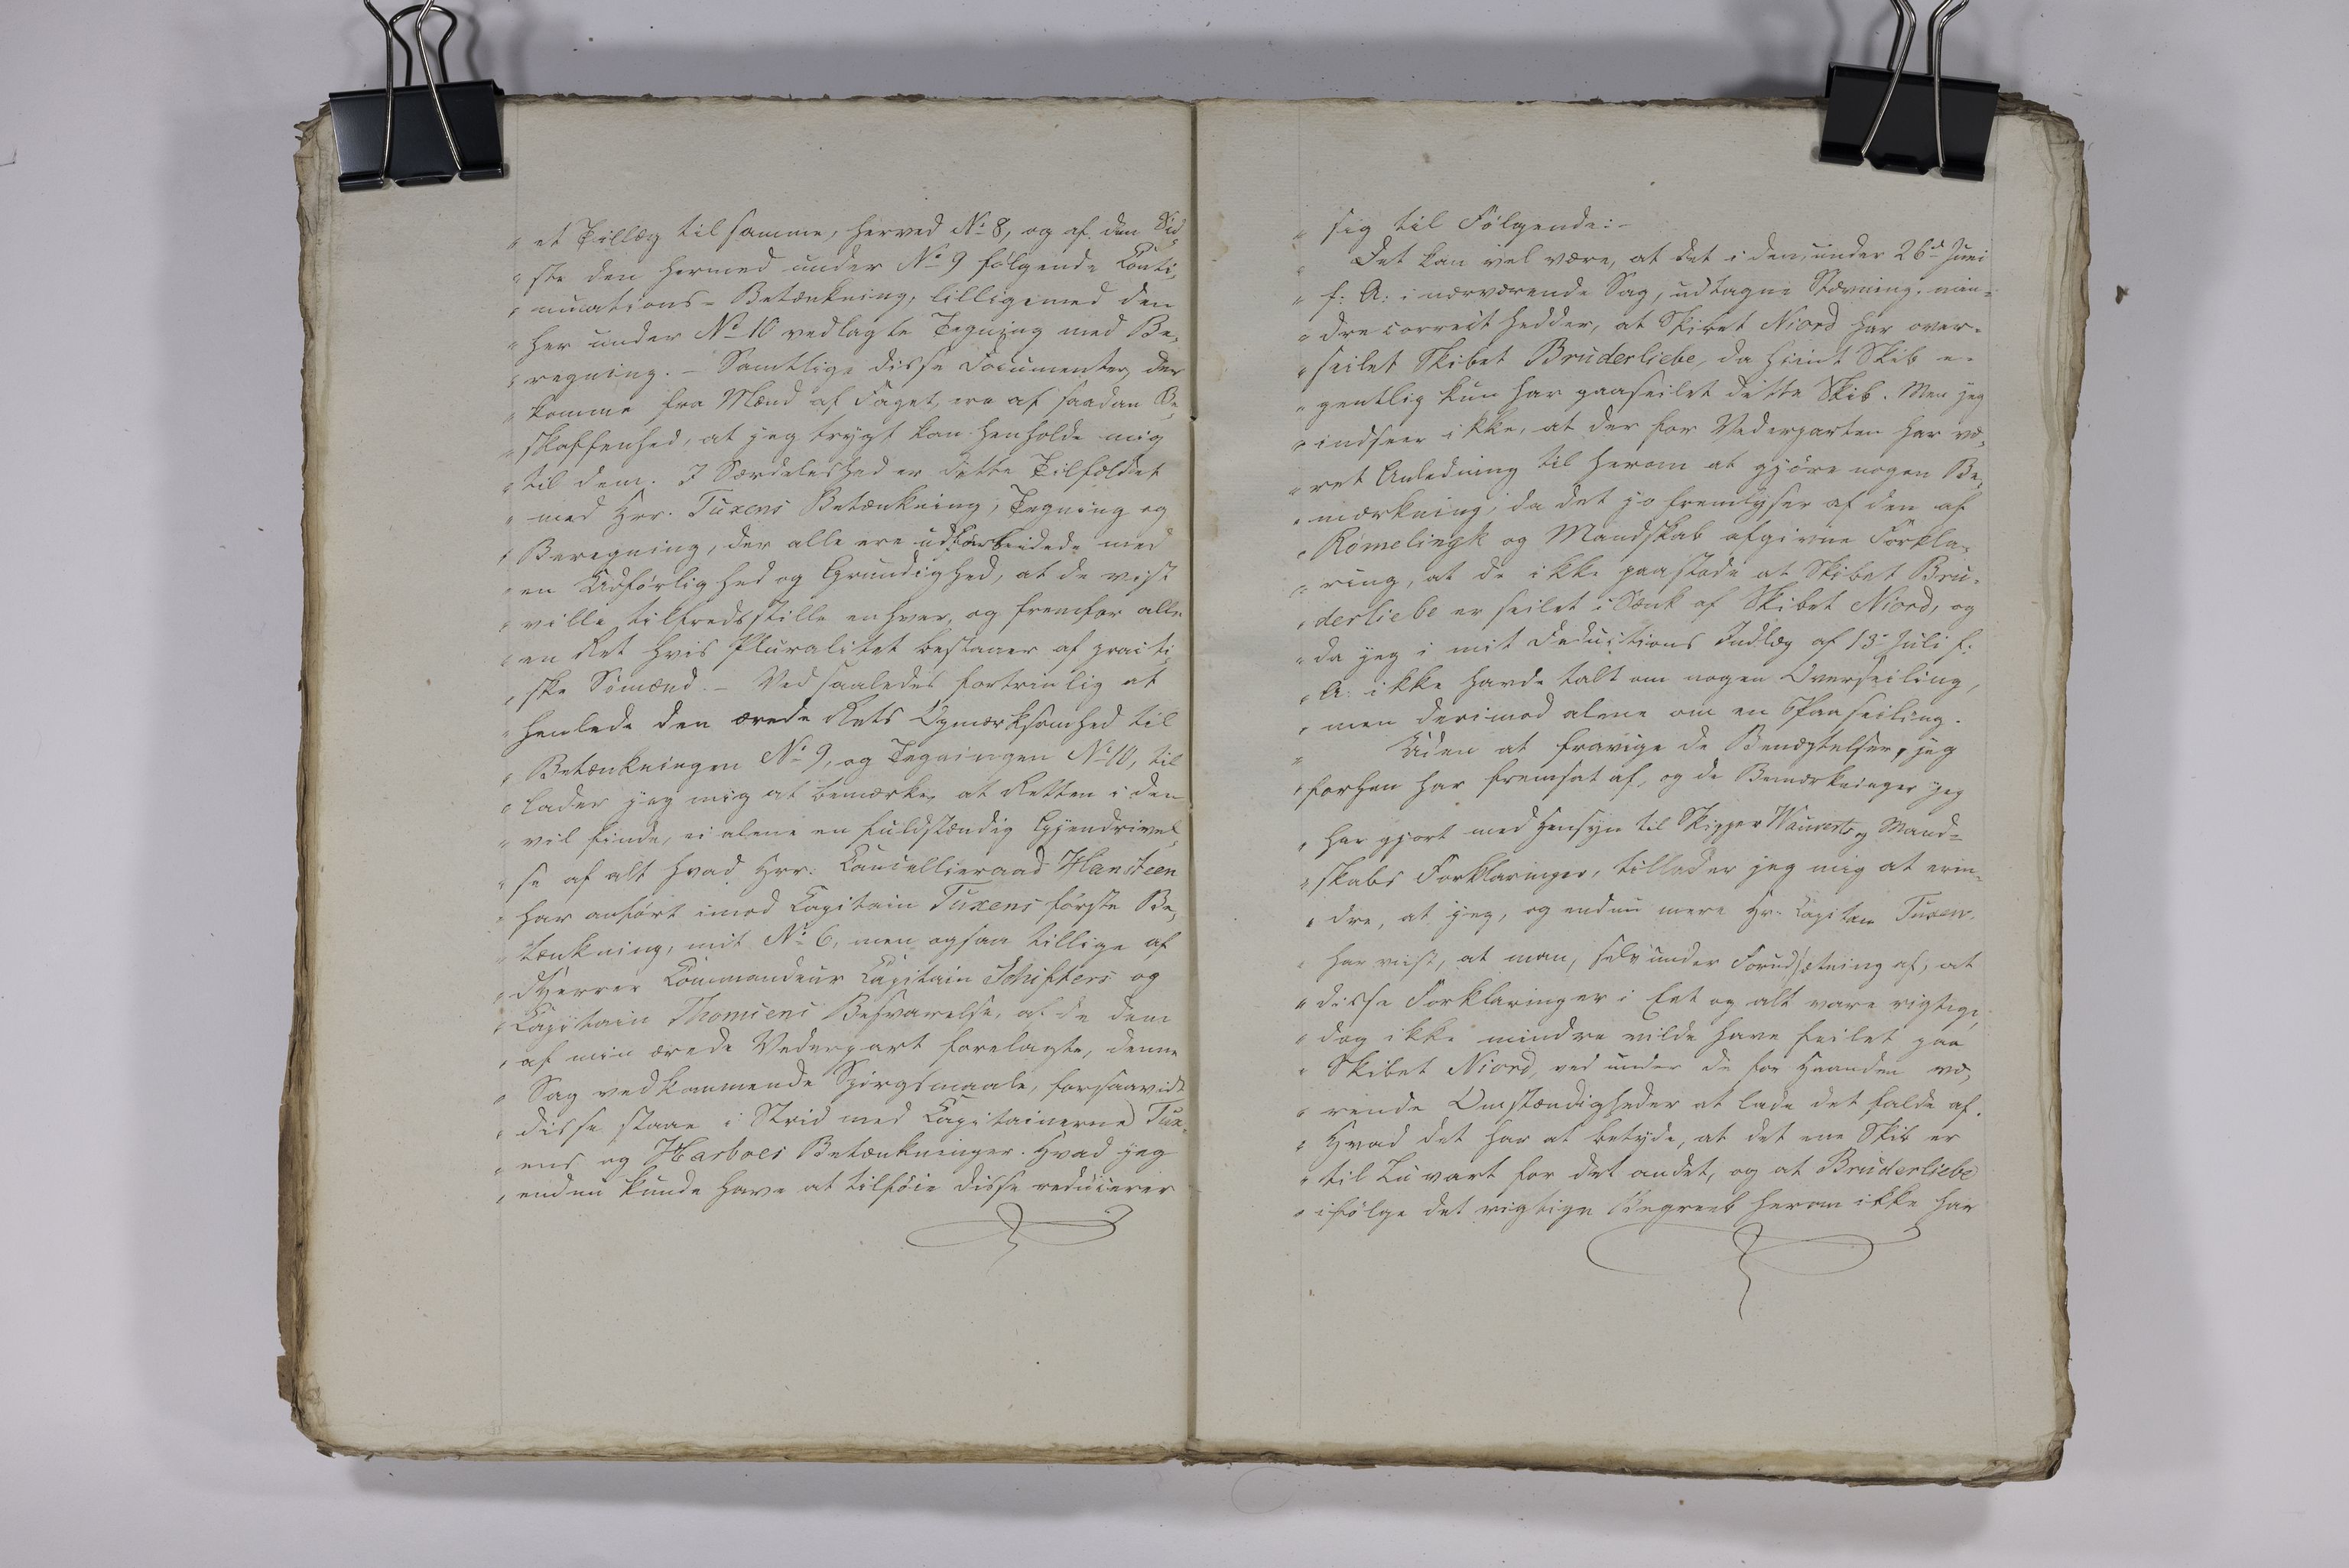 " et Tillæg til samme, herved No 8, og af den Sid,
" ste den hermed under No 9 følgende Conti,
" nuations-Betænkning, tilligemed den
" her under No 10 vedlagte Tegning med Be,
" regning. - Samtlige disse Documenter, der
" komme fra Mænd af Faget, ere af saadan Be,
" skaffenhed, at jeg trygt kan henholde mig
" til dem. I Særdeleshed er dette Tilfældet
" med Hrr. Tuxens Betænkning, Tegning og
" Beregning, der alle ere udarbeidede med
" en Udførlighed og Grundighed, at de vist
" ville tilfredsstille enhver, og fremfor alle
" en Ret hvis Pluralitet bestaaer af practi,
" ske Sømænd. - Ved saaledes fortrinlig at
" henlede den ærede Rets Opmærksomhed til
" Betænkningen No 9, og Tegningen No 10, til
" lader jeg mig at bemærke, at Retten i den
" vil finde, ei alene en fuldstændig Gjendrivel,
" se af alt hvad Hrr. Cancellieraad Hansteen
" har anført imod Capitain Tuxens første Be,
" tænkning, mit No 6, men ogsaa tillige af
" dHerrer Commandeur Capitain Schifters og
" Capitain Thomsens Besvarelse, af de dem
" af min ærede Vederpart forelagte, denne
" Sag vedkommende Spørgsmaale, forsaavidt
" disse staae i Strid med Capitainerne Tux,
" ens og Harboes Betænkninger. Hvad jeg
" endnu kunde have at tilføie disse reducerer
" sig til Følgende:-
" Det kan vel være, at det i den, under 26d Juni
" f: A: i nærværende Sag, udtagne Stævning, min-
" dre correct hedder, at Skibet Niord har over-
" seilet Skibet Bruderliebe, da hiint Skib e-
" gentlig kun har paaseilet dette Skib. Men jeg
" indseer ikke, at der for Vederparten har væ,
" ret Anledning til herom at gjøre nogen Be,
" mærkning, da det jo fremlyser af den af
" Römelingk og Mandskab afgivne Forkla,
" ring, at de ikke paastode at Skibet Bru-
" derliebe er seilet i Sænk af Skibet Niord, og
" da jeg i mit Deductions Indlæg af 13 Juli f:
" A: ikke havde talt om nogen Overseiling,
" men derimod alene om en Paaseiling.
" Uden at fravige de Benægtelser, jeg
" forhen har fremsat af, og de Bemærkninger jeg
" har gjort med Hensyn til Skipper Wauverts og Mand-
" skabs Forklaringer, tillader jeg mig at erin,
" dre, at jeg, og endnu mere Hr. Capitain Tuxen
" har viist, at man, selv under Forudsætning af, at
" disse Forklaringer i Eet og alt vare rigtige,
" dog ikke mindre vilde have feilet paa
" Skibet Niord, ved under de for Haanden væ,
" rende Omstændigheder at lade det falde af.
" Hvad det har at betyde, at det ene Skib er
" til Luvart for det andet, og at Bruderliebe
" ifølge det rigtige Begreb herom ikke har